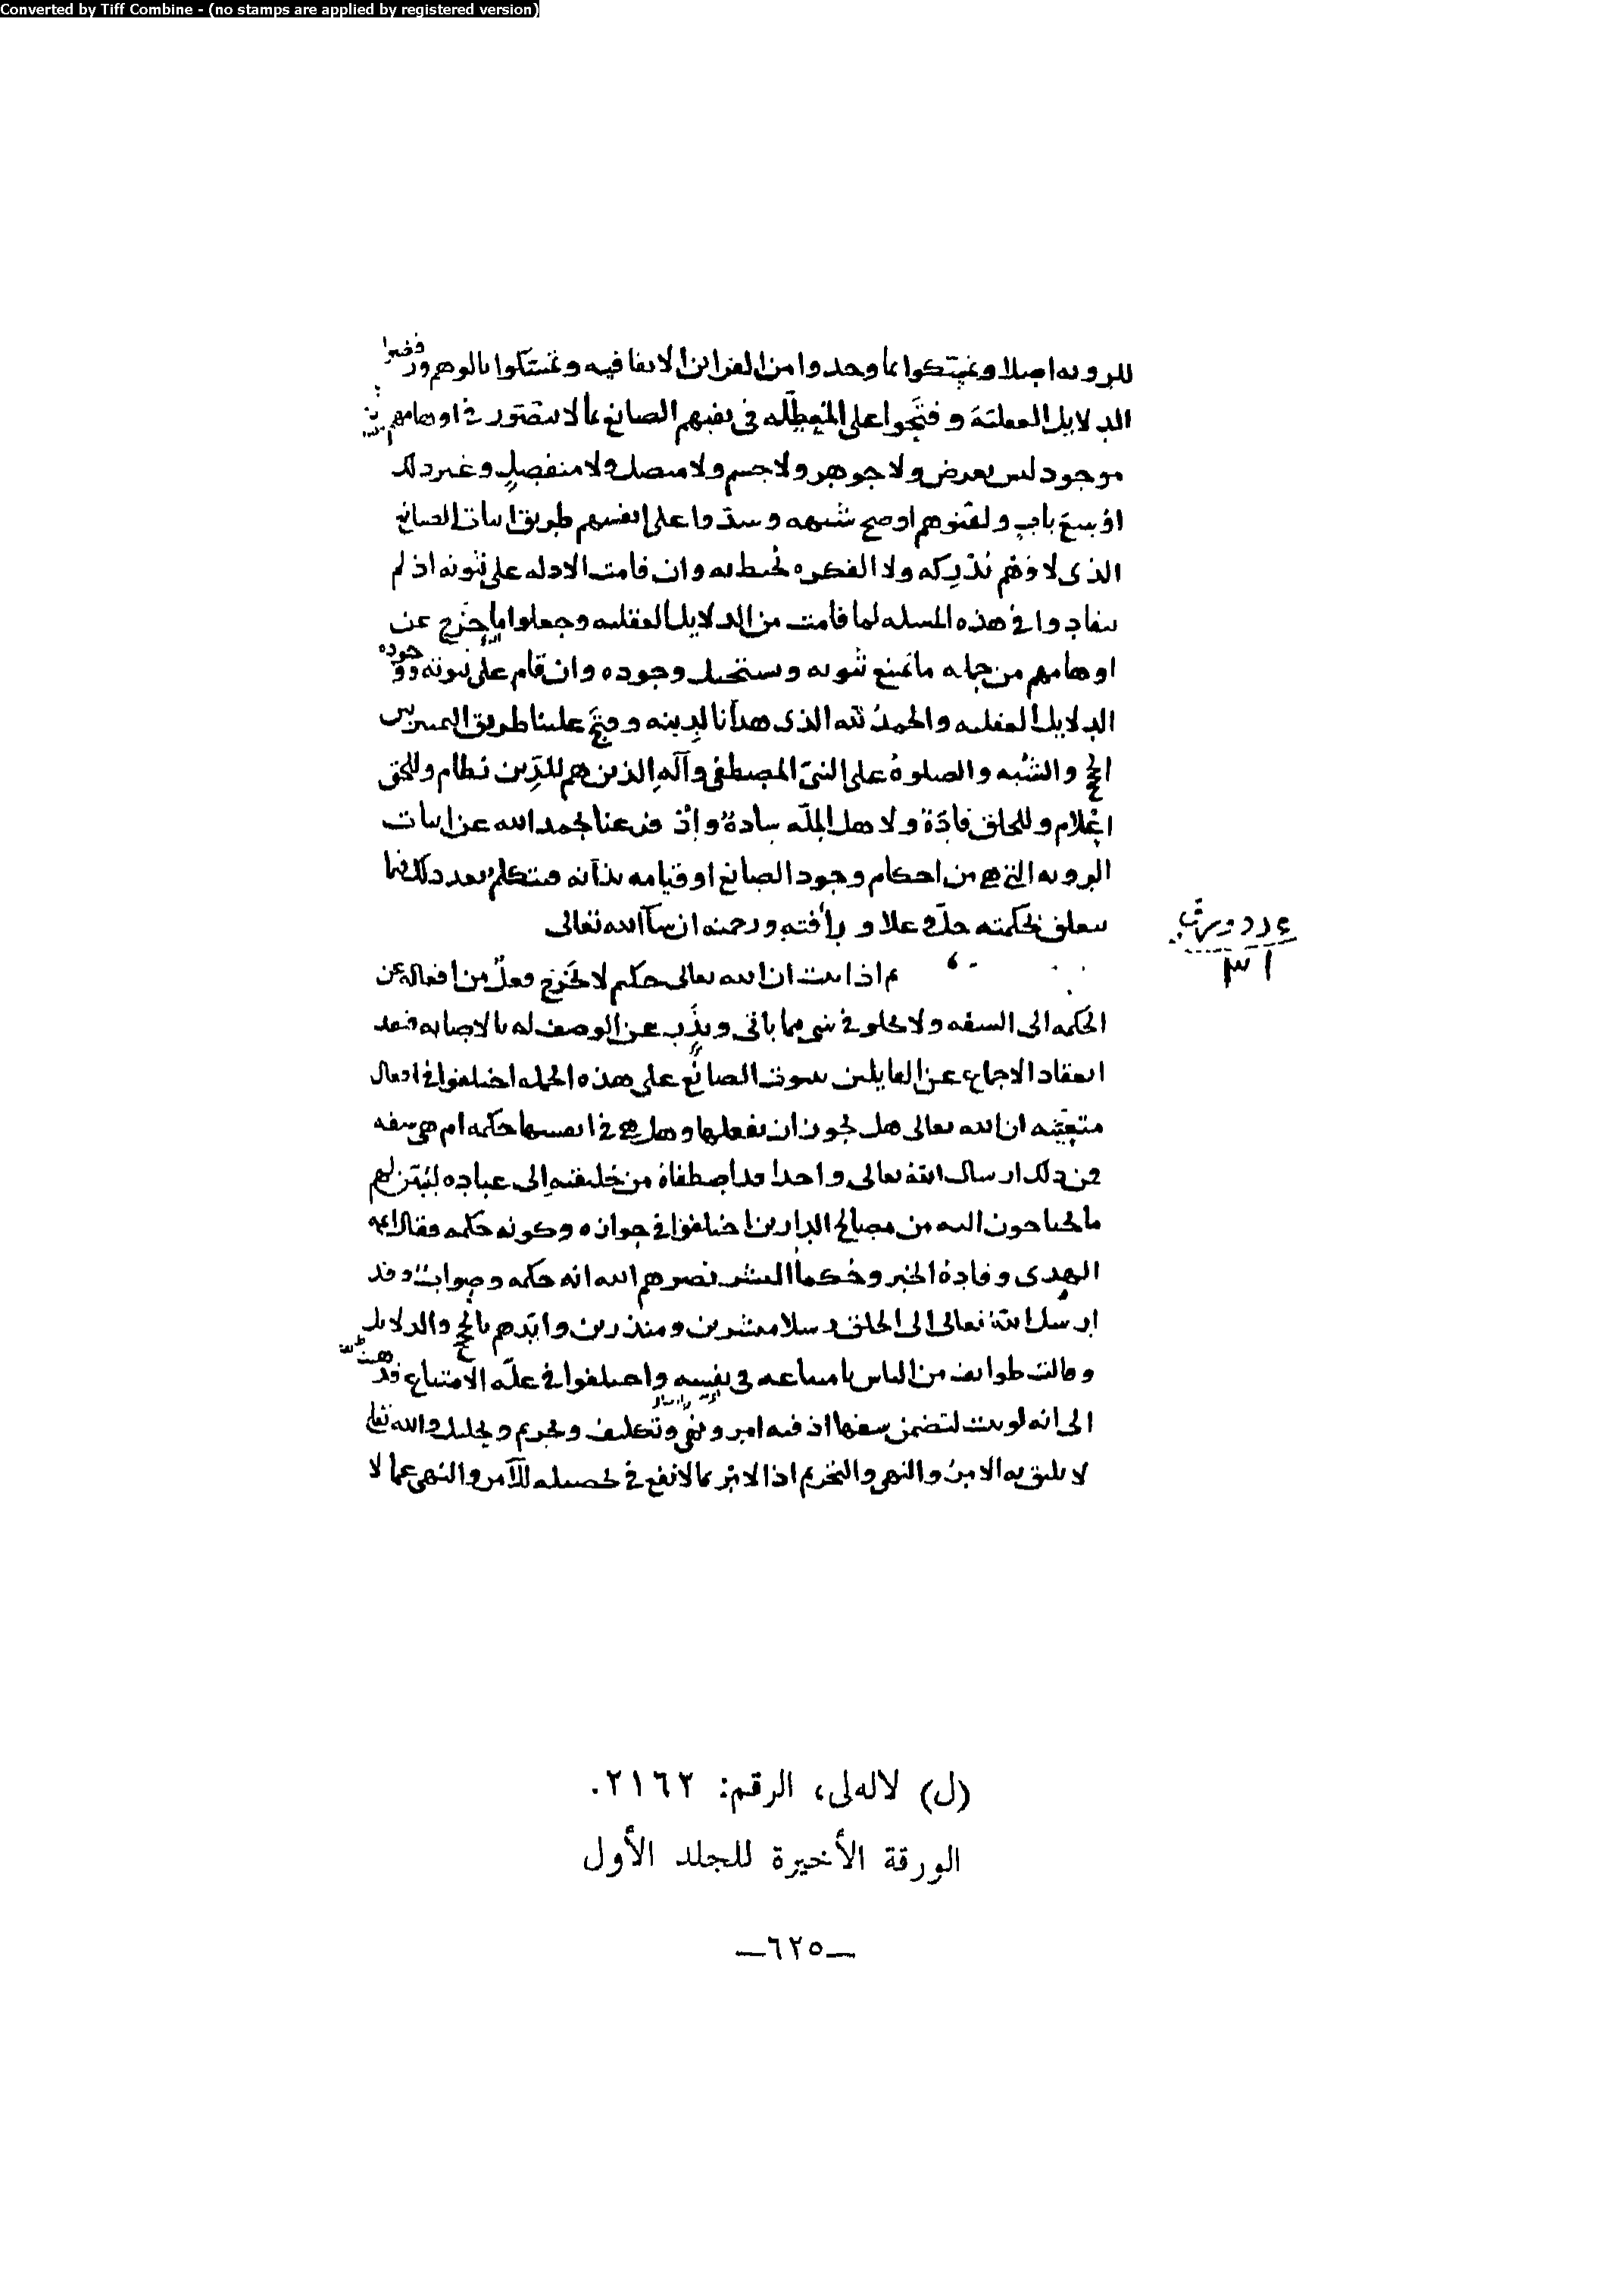 Converted by Tiff Combine - (no stamps are applied by registered version)
للرويه اصلا وتمسكوا بما وجدوا من القراين الاتفاقيه وتمسكوا بالوهم ورفضوا
الدلايل العقليه وفتحوا على المعطله في نفيهم الصانع بما لا يتصور في اوهامهم
موجود ليس بعرض ولا جوهر ولا جسم ولا متصل ولا منفصل وغير ذلك
اوسع باب ولقنوهم اوضح شبهه وسدوا على انفسهم طريق اثبات الصانع
الذى لا وهم يدركه ولا الفكره تحيط به وان قامت الادله على ثبوته اذ لم
ينقادوا في هذه المسله لما قامت من الدلايل العقليه وجعلوا ما خرج عن
اوهامهم من جمله ما يمتنع ثبوته ويستحيل وجوده وان قام على ثبوته ووجوده
الدلايل العقليه والحمد لله الذى هدانا لدينه وفتح علينا طريق التمييز بين
الحجج والشبه والصلوة على النبى المصطفى وآله الذين هم للدين نظام وللحق
اعلام وللخلق قادة ولاهل المله سادة واذ فرغنا بحمد الله عن اثبات
الرويه التى هى من احكام وجود الصانع او قيامه بذاته فنتكلم بعد ذلك فيما
يتعلق بحكمته جل وعلا ورأفته ورحمته ان شا الله تعالى
٣١
ثم اذا ثبت ان الله تعالى حكيم لا يخرج فعل من افعاله عن
الحكمه الى السفه ولا يخلو في شى مما ياتى ويذر عن الوصف له بالاصابه فبعد
انعقاد الاجماع عن القايلين بثبوت الصانع على هذه الجمله اختلفوا في افعال
متعينه ان الله تعالى هل يجوز ان يفعلها وهل هى في انفسها حكمه ام هى سفه
فمن ذلك ارسال الله تعالى واحدا قد اصطفاه من خليقته الى عباده ليبين لهم
ما يحتاجون اليه من مصالح الدارين اختلفوا في جوازه وكونه حكمه فقال ايمه
الهدى وقادة الخير وحكما البشر نصرهم الله انه حكمه وصواب وقد
ارسل الله تعالى الى الخلق رسلا مبشرين ومنذرين وايدهم بالحجج والدلايل
وقالت طوايف من الناس بامتناعه في نفسه واختلفوا في علة الامتناع
الى انه لو ثبت لتضمن سفها اذ فيه امر ونهى وتكليف وتحريم وتحليل والله تعالى
لا يليق به الامر والنهى والتحريم اذ الامر بما لا نفع في تحصيله للآمر والنهى عما لا
(ل) لاله‌لى، الرقم: ٢١٦٢.
الورقة الأخيرة للجلد الأول
—٦٢٥—